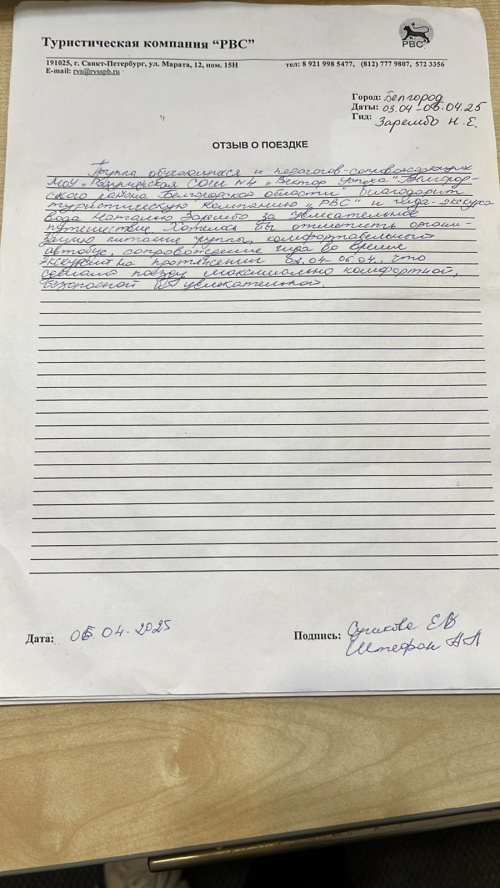 Туристическая компания “РВС”
РВС
191025, г. Санкт-Петербург, ул. Марата, 12, пом. 15Н
тел: 8 921 998 5477, (812) 777 9807, 572 3356
E-mail: rvs@rvsspb.ru
Город: Белгород
Даты: 03.04-06.04.25
Гид: Зарембо Н.Е.
ОТЗЫВ О ПОЕЗДКЕ
Группа обучающихся и педагогов-сопровождающих
МОУ „Разуменская СОШ №4 „Вектор Успеха" Белгород-
ского района Белгородской области" благодарит
туристическую компанию „РВС" и гида-экскурсо
вода Наталью Зарембо за увлекательное
путешествие. Хотелось бы отметить органи-
зацию питания группы, комфортабельного
автобус, сопровождение гида во время
экскурсий на протяжении 03.04-06.04., что
сделало поездку максимально комфортной,
безопасной и увлекательной.
Дата: 06.04.2025
Подпись: ЕВ
Штефан